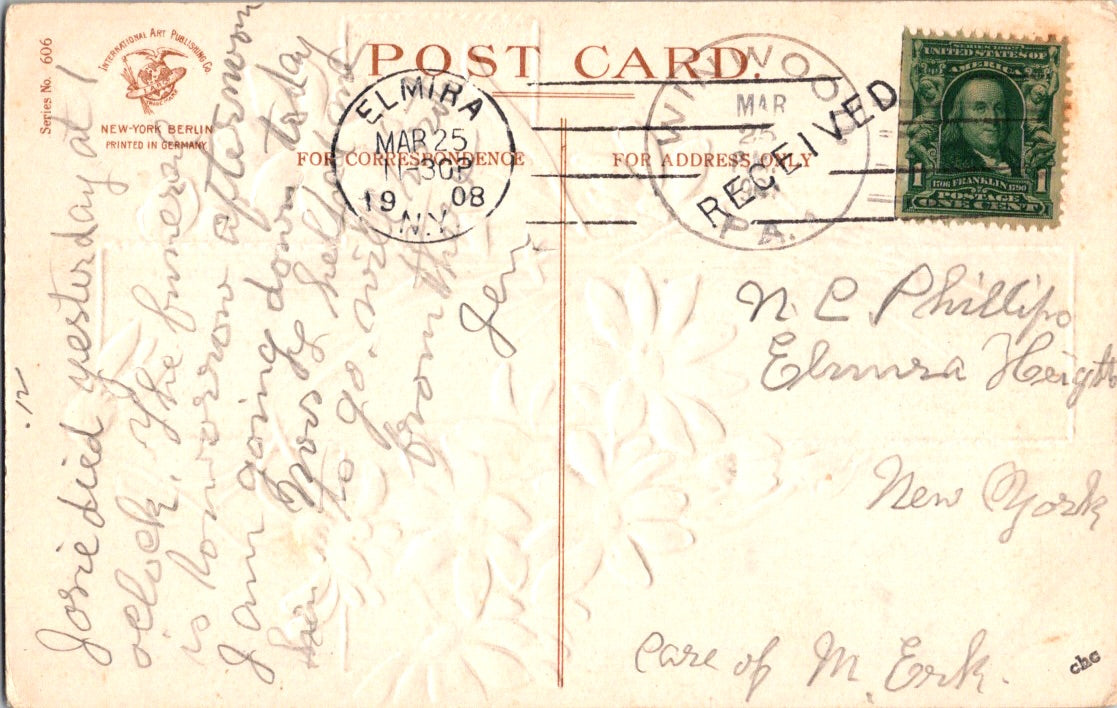 Series No. 606
INTERNATIONAL ART PUBLISHING Co.
NEW-YORK BERLIN
PRINTED IN GERMANY
POST CARD.
FOR CORRESPONDENCE
FOR ADDRESS ONLY
ELMIRA
MAR 25
11-30P
19 08
N.Y.
MAR
25
PA.
RECEIVED
SERIES 1902
UNITED STATES OF
AMERICA
1706 FRANKLIN 1790
1 1
POSTAGE
ONE CENT
Josie died yesterday at 1
oclock. The funeral
is tomorrow afternoon
I am going down today
to go. will
from
Jen
N C Phillips
Elmira Heigth
New York
care of M. Erk.
chc